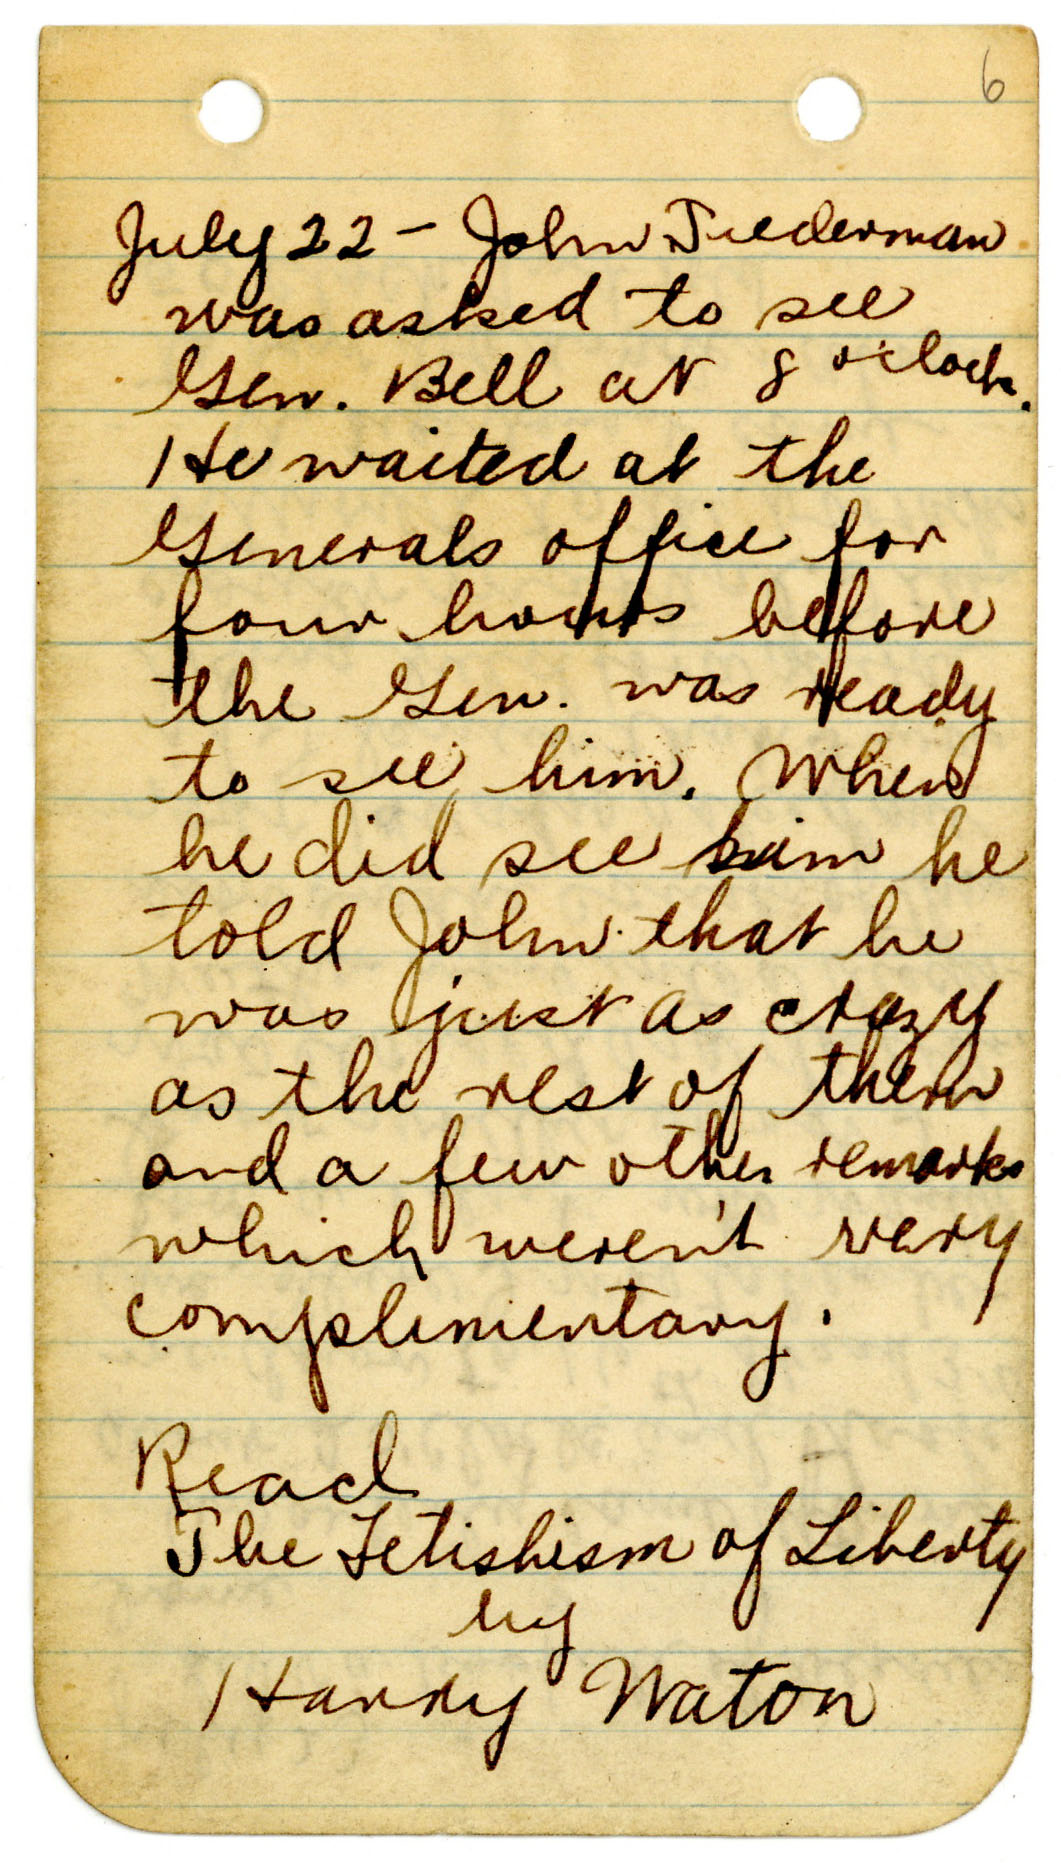 6
July 22 - John Tiederman
was asked to see
Gen. Bell at 8 o'clock.
He waited at the
Generals office for
four hours before
the Gen. was ready
to see him. When
he did see him he
told John that he
was just as crazy
as the rest of them
and a few other remarks
which weren't very
complimentary.
Read
The Fetishism of Liberty
by
Harry Waton